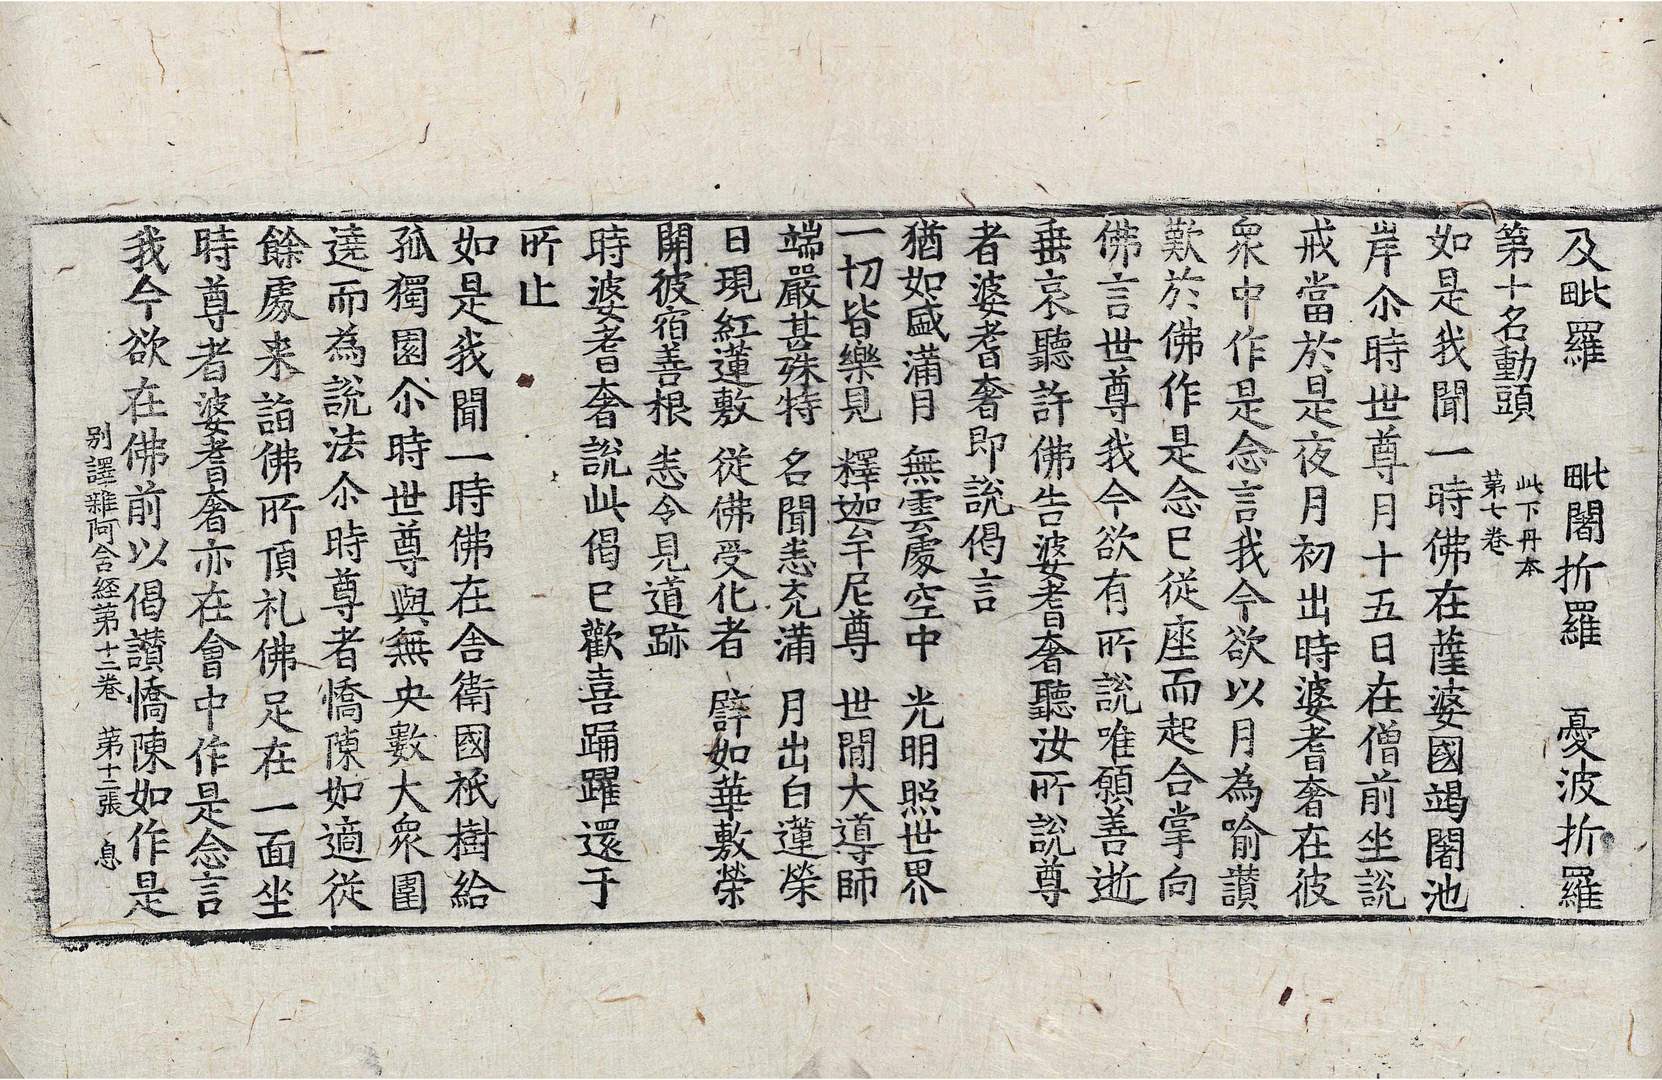 及毗羅　毗闍折羅　憂波折羅
第十名動頭
此下丹本
第七卷
如是我聞一時佛在薩婆國竭闍池
岸尒時世尊月十五日在僧前坐說
戒當於是夜月初出時婆耆奢在彼
衆中作是念言我今欲以月為喻讃
歎於佛作是念已從座而起合掌向
佛言世尊我今欲有所說唯願善逝
垂哀聽許佛告婆耆奢聽汝所說尊
者婆耆奢即說偈言
猶如盛滿月　無雲處空中　光明照世界
一切皆樂見　釋迦牟尼尊　世間大導師
端嚴甚殊特　名聞悉充滿　月出白蓮榮
日現紅蓮敷　從佛受化者　譬如華敷榮
開彼宿善根　悉令見道跡
時婆耆奢說此偈已歡喜踊躍還于
所止
如是我聞一時佛在舍衛國祇樹給
孤獨園尒時世尊與無央數大衆圍
遶而為說法尒時尊者憍陳如適從
餘處来詣佛所頂礼佛足在一面坐
時尊者婆耆奢亦在會中作是念言
我今欲在佛前以偈讃憍陳如作是
别譯雜阿含經第十二卷　第十二張　息